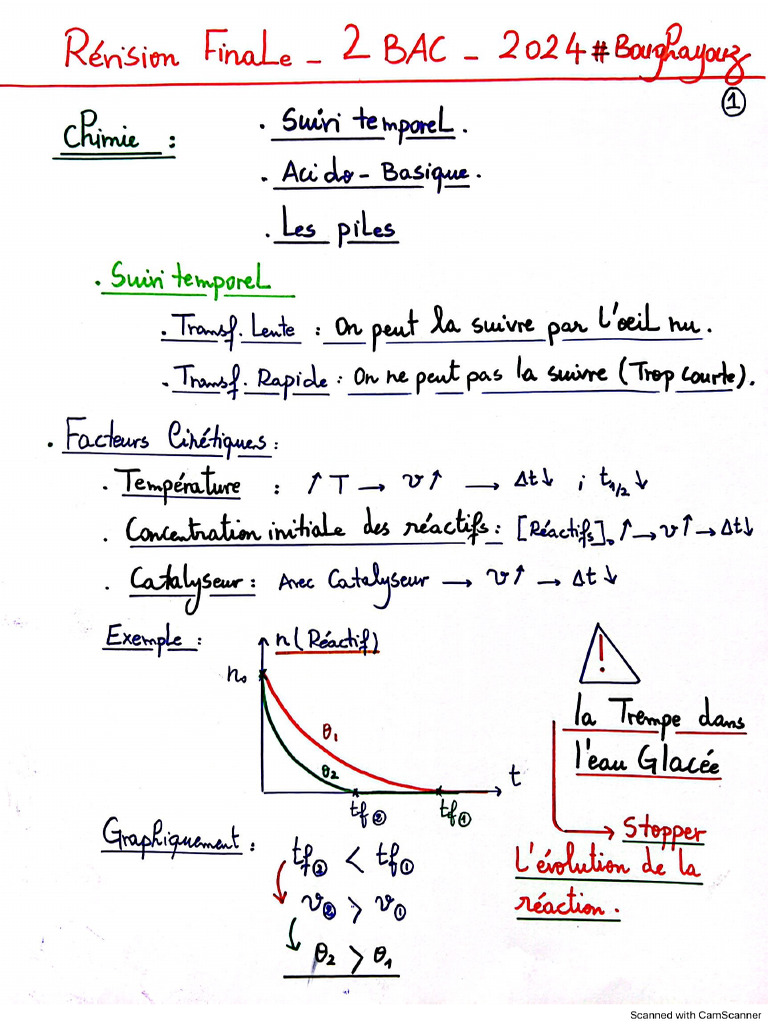 Révision Finale - 2 BAC - 2024 #Boughrayouz
1
Chimie :
. Suivi temporel.
. Acido-Basique.
. Les piles
. Suivi temporel
. Transf. Lente : On peut la suivre par l'oeil nu.
. Transf. Rapide : On ne peut pas la suivre (Trop courte).
. Facteurs Cinétiques :
. Température : ↑ T → v ↑ → Δt ↓ ; t1/2 ↓
. Concentration initiale des réactifs : [Réactifs]₀ ↑ → v ↑ → Δt ↓
. Catalyseur : Avec Catalyseur → v ↑ → Δt ↓
Exemple :
n (Réactif)
n₀
θ₁
θ₂
t
tf②
tf①
!
la Trempe dans
l'eau Glacée
→ Stopper
L'évolution de la
réaction.
Graphiquement :
tf② < tf①
v② > v①
θ₂ > θ₁
Scanned with CamScanner